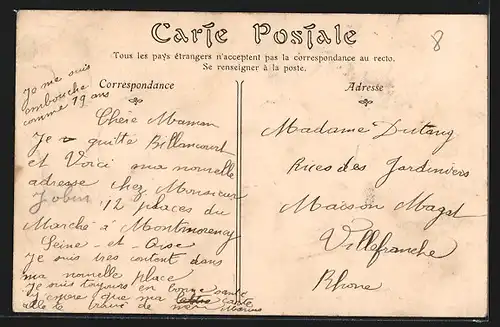 Carte Postale
8
Tous les pays étrangers n'acceptent pas la correspondance au recto.
Se renseigner à la poste.
Correspondance
Je me suis
embouche
comme 19 ans
Chère Maman
Je quitte Billancourt
et Voici ma nouvelle
adresse chez Monsieur
Jobin 12 places du
Marché à Montmorency
Seine-et-Oise
Je suis tres contant dans
ma nouvelle place
Je suis toujours en bonne sante
J'espere que ma carte
de meme Marius
Adresse
Madame Dutang
Rues des Jardiniers
Maison Magat
Villefranche
Rhone